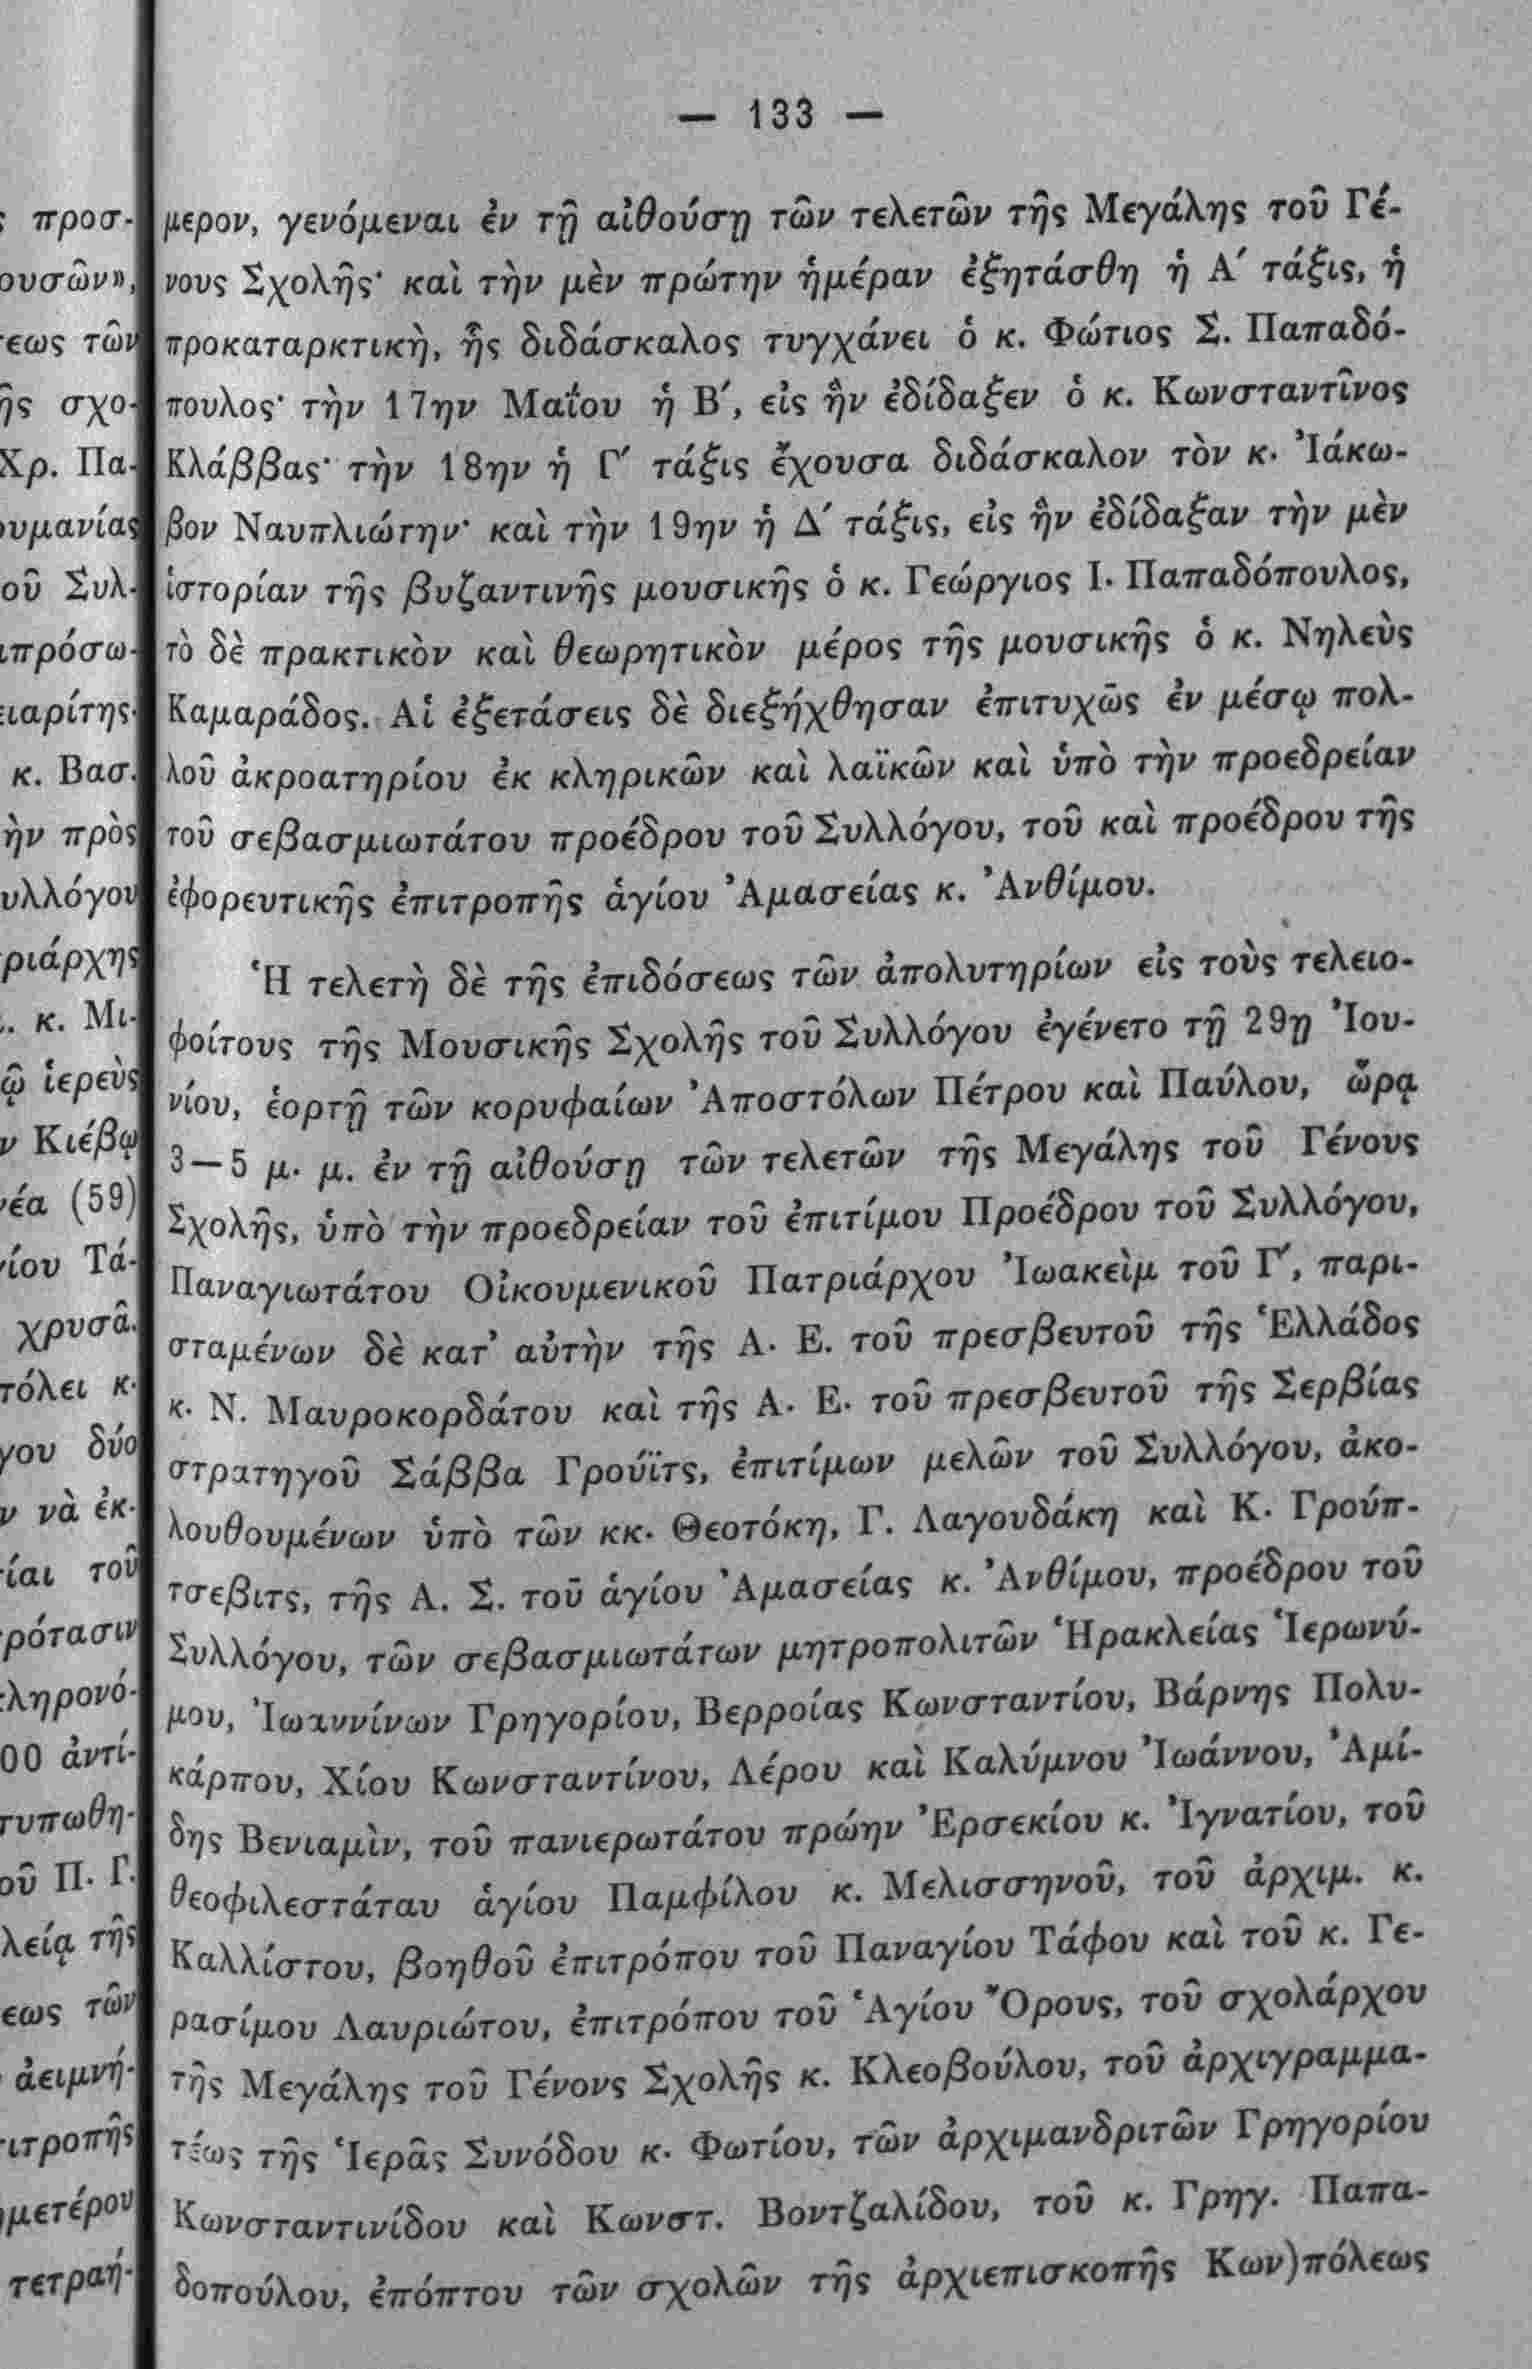 — 133 —
μερον, γενόμεναι ἐν τῇ αἰθούσῃ τῶν τελετῶν τῆς Μεγάλης τοῦ Γέ-
νους Σχολῆς· καὶ τὴν μὲν πρώτην ἡμέραν ἐξητάσθη ἡ Α΄ τάξις, ἡ
προκαταρκτικὴ, ἧς διδάσκαλος τυγχάνει ὁ κ. Φώτιος Σ. Παπαδό-
πουλος· τὴν 17ην Μαΐου ἡ Β΄, εἰς ἣν ἐδίδαξεν ὁ κ. Κωνσταντῖνος
Κλάββας· τὴν 18ην ἡ Γ΄ τάξις ἔχουσα διδάσκαλον τὸν κ. Ἰάκω-
βον Ναυπλιώτην· καὶ τὴν 19ην ἡ Δ΄ τάξις, εἰς ἣν ἐδίδαξαν τὴν μὲν
ἱστορίαν τῆς βυζαντινῆς μουσικῆς ὁ κ. Γεώργιος Ι. Παπαδόπουλος,
τὸ δὲ πρακτικὸν καὶ θεωρητικὸν μέρος τῆς μουσικῆς ὁ κ. Νηλεὺς
Καμαράδος. Αἱ ἐξετάσεις δὲ διεξήχθησαν ἐπιτυχῶς ἐν μέσῳ πολ-
λοῦ ἀκροατηρίου ἐκ κληρικῶν καὶ λαϊκῶν καὶ ὑπὸ τὴν προεδρείαν
τοῦ σεβασμιωτάτου προέδρου τοῦ Συλλόγου, τοῦ καὶ προέδρου τῆς
ἐφορευτικῆς ἐπιτροπῆς ἁγίου Ἀμασείας κ. Ἀνθίμου.
Ἡ τελετὴ δὲ τῆς ἐπιδόσεως τῶν ἀπολυτηρίων εἰς τοὺς τελειο-
φοίτους τῆς Μουσικῆς Σχολῆς τοῦ Συλλόγου ἐγένετο τῇ 29ῃ Ἰου-
νίου, ἑορτῇ τῶν κορυφαίων Ἀποστόλων Πέτρου καὶ Παύλου, ὥρᾳ
3—5 μ. μ. ἐν τῇ αἰθούσῃ τῶν τελετῶν τῆς Μεγάλης τοῦ Γένους
Σχολῆς, ὑπὸ τὴν προεδρείαν τοῦ ἐπιτίμου Προέδρου τοῦ Συλλόγου,
Παναγιωτάτου Οἰκουμενικοῦ Πατριάρχου Ἰωακεὶμ τοῦ Γ΄, παρι-
σταμένων δὲ κατ’ αὐτὴν τῆς Α. Ε. τοῦ πρεσβευτοῦ τῆς Ἑλλάδος
κ. Ν. Μαυροκορδάτου καὶ τῆς Α. Ε. τοῦ πρεσβευτοῦ τῆς Σερβίας
στρατηγοῦ Σάββα Γρούϊτς, ἐπιτίμων μελῶν τοῦ Συλλόγου, ἀκο-
λουθουμένων ὑπὸ τῶν κκ. Θεοτόκη, Γ. Λαγουδάκη καὶ Κ. Γρούπ-
τσεβιτς, τῆς Α. Σ. τοῦ ἁγίου Ἀμασείας κ. Ἀνθίμου, προέδρου τοῦ
Συλλόγου, τῶν σεβασμιωτάτων μητροπολιτῶν Ἡρακλείας Ἱερωνύ-
μου, Ἰωαννίνων Γρηγορίου, Βερροίας Κωνσταντίου, Βάρνης Πολυ-
κάρπου, Χίου Κωνσταντίνου, Λέρου καὶ Καλύμνου Ἰωάννου, Ἀμί-
δης Βενιαμὶν, τοῦ πανιερωτάτου πρώην Ἐρσεκίου κ. Ἰγνατίου, τοῦ
θεοφιλεστάταυ ἁγίου Παμφίλου κ. Μελισσηνοῦ, τοῦ ἀρχιμ. κ.
Καλλίστου, βοηθοῦ ἐπιτρόπου τοῦ Παναγίου Τάφου καὶ τοῦ κ. Γε-
ρασίμου Λαυριώτου, ἐπιτρόπου τοῦ Ἁγίου Ὄρους, τοῦ σχολάρχου
τῆς Μεγάλης τοῦ Γένονς Σχολῆς κ. Κλεοβούλου, τοῦ ἀρχιγραμμα-
τέως τῆς Ἱερᾶς Συνόδου κ. Φωτίου, τῶν ἀρχιμανδριτῶν Γρηγορίου
Κωνσταντινίδου καὶ Κωνστ. Βοντζαλίδου, τοῦ κ. Γρηγ. Παπα-
δοπούλου, ἐπόπτου τῶν σχολῶν τῆς ἀρχιεπισκοπῆς Κων)πόλεως